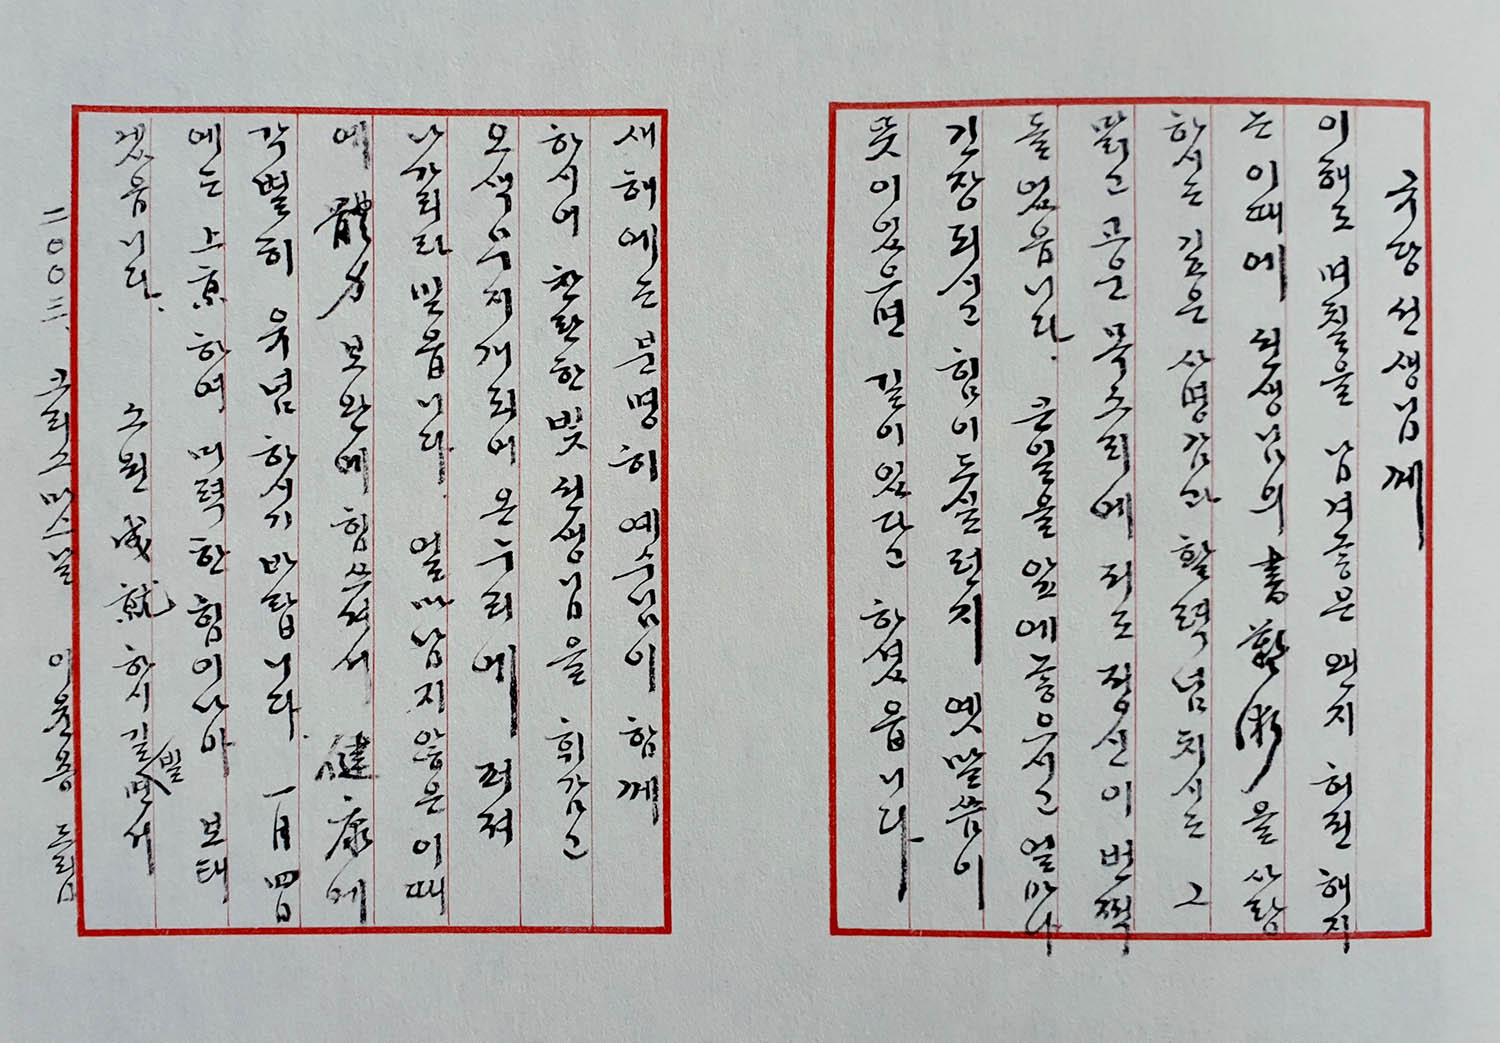 국당 선생님께
이해도 며칠을 남겨 좋은 왠지 허전해지
는 이때에 선생님의 書藝術을 사랑
하시는 깊은 사명감과 활력 넘치시는 그
맑고 공근 목소리에 저도 정신이 번쩍
들었읍니다. 큰일을 앞에 놓으시고 얼마나
긴장되시고 힘이 드실런지 옛말씀이
뜻이 있으면 길이 있다고 하셨읍니다
새해에는 분명히 예수님이 함께
하시어 찬란한 빛 선생님을 휘감고
오색 무지개 되어 온누리에 퍼져
나가리라 믿읍니다. 얼마 남지 않은 이때
에 體力 보완에 힘쓰셔서 健康에
각별히 유념하시기 바랍니다. 一月四日
에는 上京하여 미력한 힘이나마 보태
겠읍니다. 소원 成就 하시길 빌면서
二○○三. 크리스마스날 이 용 드림